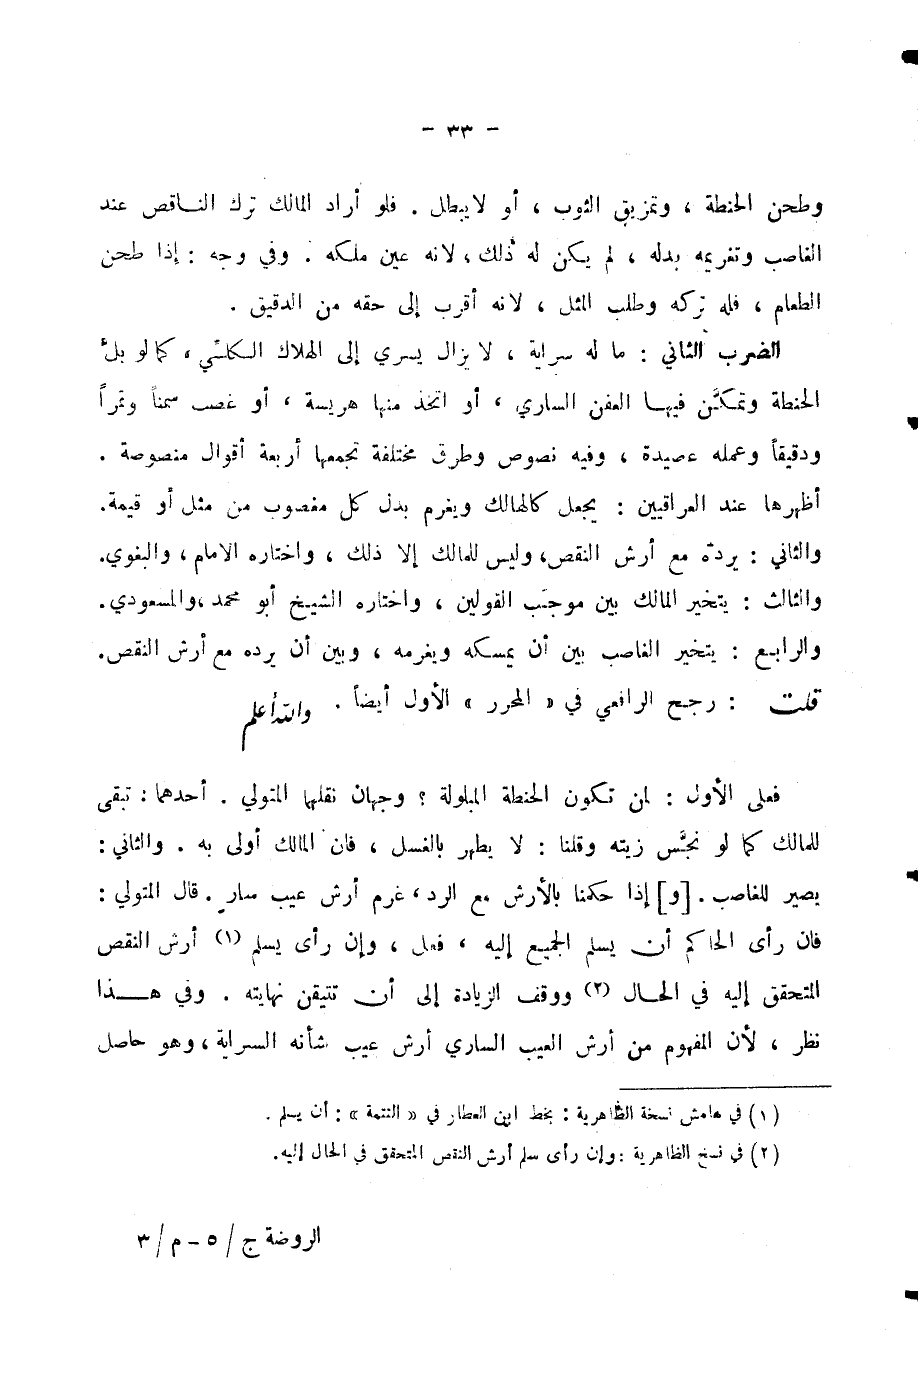 - ٣٣ -
وطحن الحنطة ، وتمزيق الثوب ، أو لا يبطل . فلو أراد المالك ترك النـاقص عند
الغاصب وتغريمه بدله ، لم يكن له ذلك ، لانه عين ملكه . وفي وجه : إذا طحن
الطعام ، فله تركه وطلب المثل ، لانه أقرب إلى حقه من الدقيق .
الضرب الثاني : ما له سراية ، لا يزال يسري إلى الهلاك الكلي ، كما لو بلَّ
الحنطة وتمكَّن فيهـا العفن الساري ، أو اتخذ منها هريسة ، أو غصب سمناً وتمراً
ودقيقاً وعمله عصيدة ، وفيه نصوص وطرق مختلفة تجمعها أربعة أقوال منصوصة .
أظهرها عند العراقيين : يجعل كالهالك ويغرم بدل كل مغصوب من مثل أو قيمة.
والثاني : يردّه مع أرش النقص، وليس للمالك إلا ذلك ، واختاره الامام ، والبغوي.
والثالث : يتخير المالك بين موجَب القولين ، واختاره الشيـخ أبو محمد ،والمسعودي.
والرابـع : يتخير الغاصب بين أن يمسكه ويغرمه ، وبين أن يرده مع أرش النقص.
قلت : رجـح الرافعي في « المحرر » الأول أيضاً . والله أعلم
فعلى الأول : لمن تكون الحنطة المبلولة ؟ وجهان نقلها المتولي . أحدهما : تبقى
للمالك كما لو نجَّس زيته وقلنا : لا يطهر بالغسل ، فان المالك أولى به . والثاني :
يصير للغاصب . [و] إذا حكمنا بالأرش مع الرد ، غرم أرش عيب سارٍ . قال المتولي :
فان رأى الحاكم أن يسلم الجميع إليه ، فعل ، وإن رأى يسلم (١) أرش النقص
المتحقق إليه في الحـال (٢) ووقف الزيادة إلى أن تتيقن نهايته . وفي هـــذا
نظر ، لأن المفهوم من أرش العيب الساري أرش عيب شأنه السراية ، وهو حاصل
(١) في هامش نسخة الظاهرية : بخط ابن العطار في « التتمة » : أن يسلم .
(٢) في نسخ الظاهرية : وإن رأى سلم أرش النقص المتحقق في الحال إليه.
الروضة ج / ٥ - م / ٣